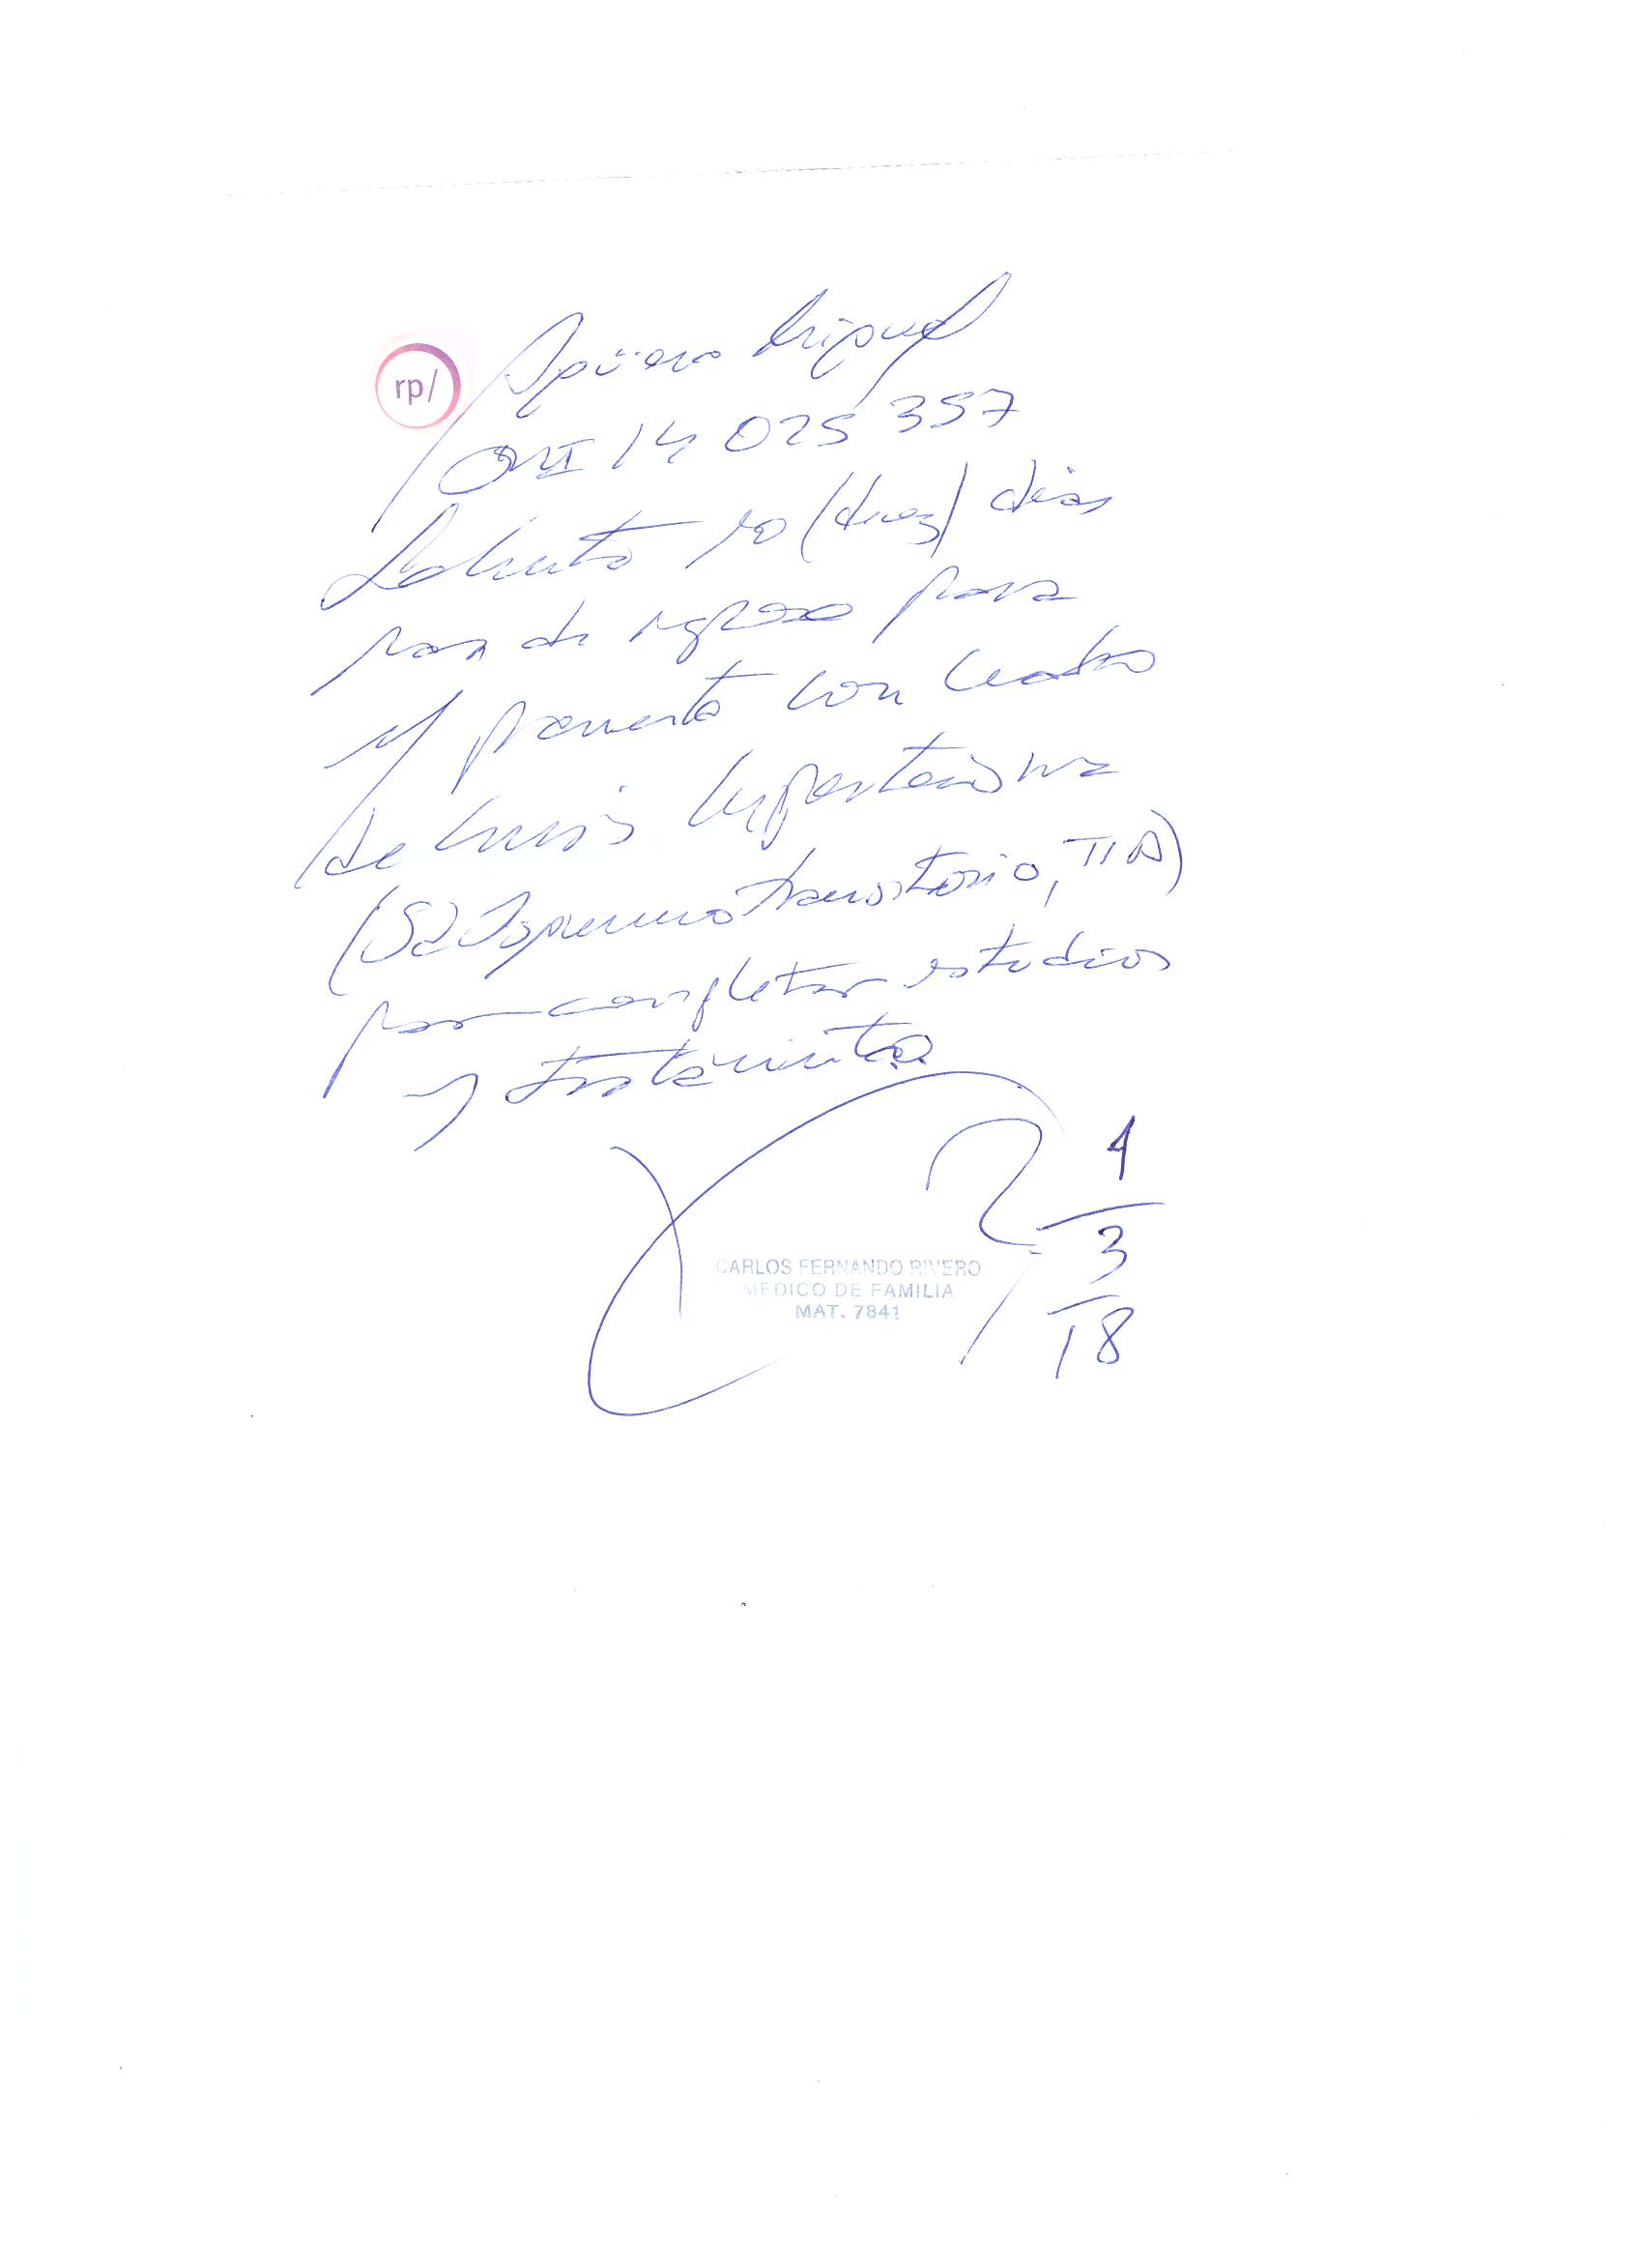 rp/
Agüero Miguel
DNI 14 025 357
Solicito 10 (diez) días
para de reposo para
y presenta con cuadro
de crisis hipertensiva
(Sd Isquemico transitorio, TIA)
para completar estudios
y tratamiento
4
3
18
CARLOS FERNANDO RIVERO
MEDICO DE FAMILIA
MAT. 7841